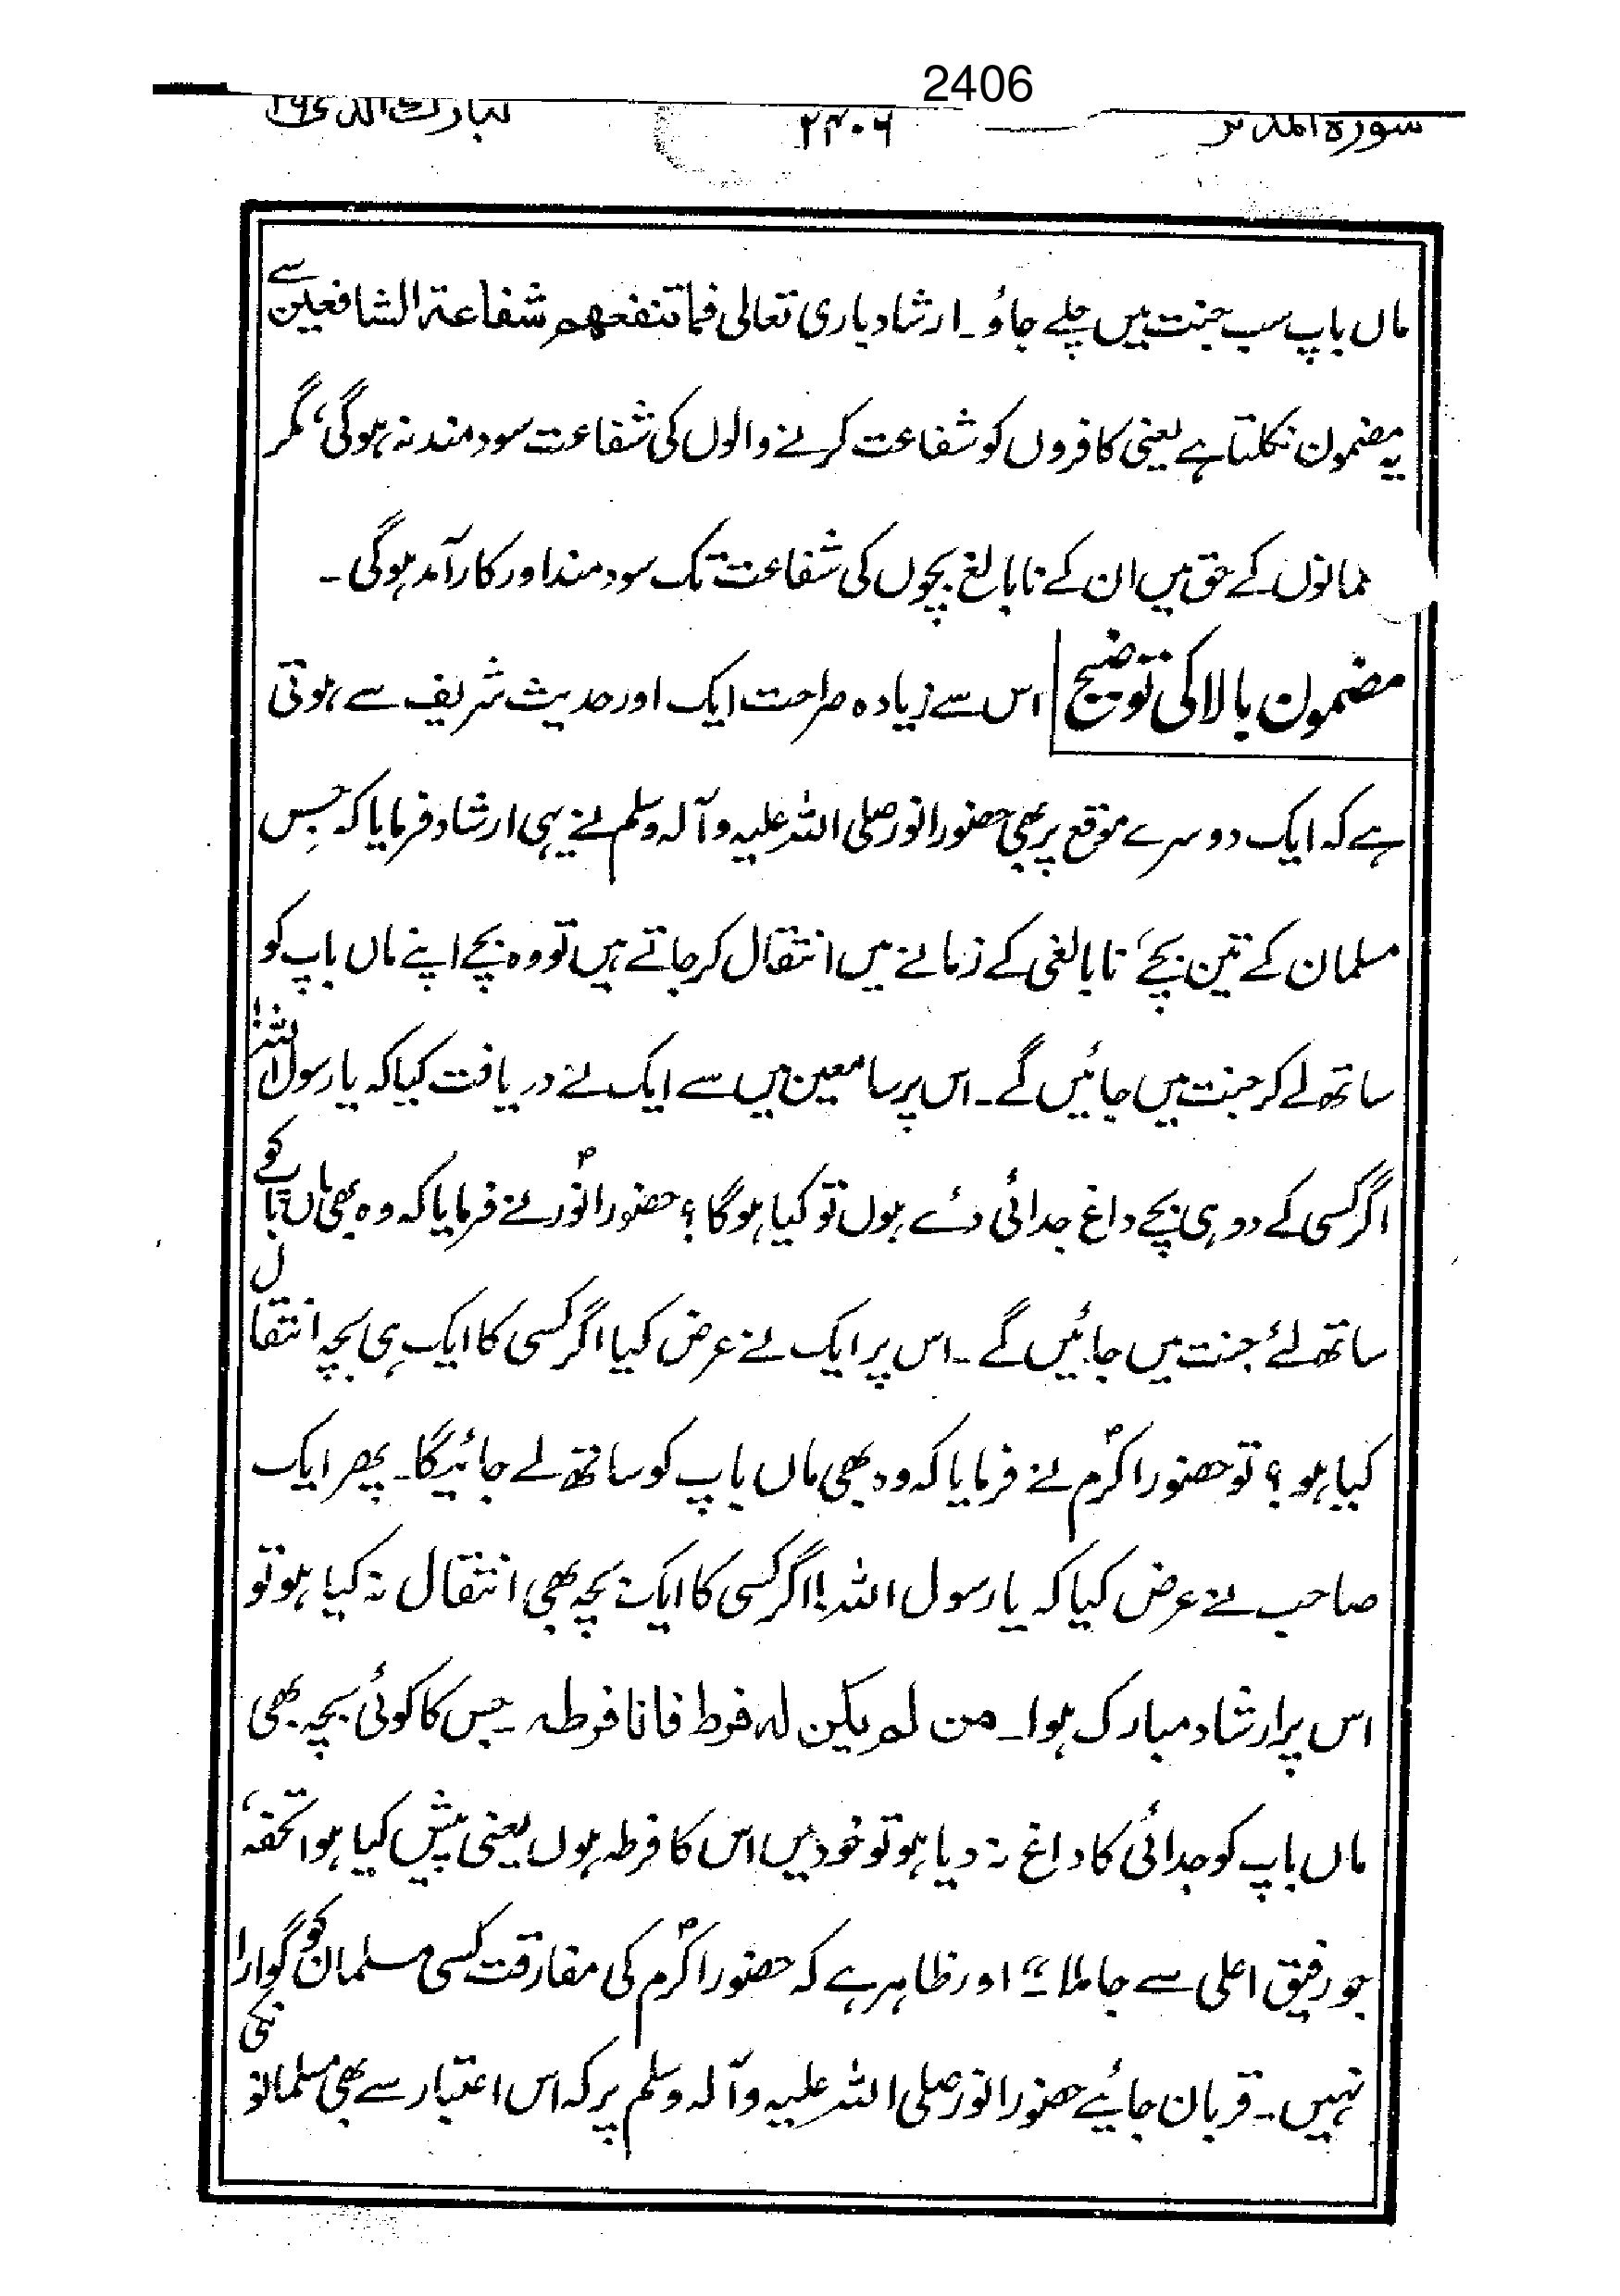 2406
سورہ المدثر ۲۴۰۶ تبارک الذی ۲۹
ماں باپ سب جنت میں چلے جاؤ۔ ارشاد باری تعالی فما تنفعھم شفاعۃ الشافعین سے
یہ مضمون نکلتا ہے یعنی کافروں کو شفاعت کرنے والوں کی شفاعت سود مند نہ ہوگی، مگر
لمانوں کے حق میں ان کے نابالغ بچوں کی شفاعت تک سود مند اور کارآمد ہوگی۔
مضمون بالا کی توضیح اس سے زیادہ صراحت ایک اور حدیث شریف سے ہوتی
ہے کہ ایک دوسرے موقع پر بھی حضور انور صلی اللہ علیہ وآلہ وسلم نے یہی ارشاد فرمایا کہ جس
مسلمان کے تین بچے، نابالغی کے زمانے میں انتقال کر جاتے ہیں تو وہ بچے اپنے ماں باپ کو
ساتھ لے کر جنت میں جائیں گے۔ اس پر سامعین میں سے ایک نے دریافت کیا کہ یا رسول اللہ!
اگر کسی کے دو ہی بچے داغ جدائی دئے ہوں تو کیا ہوگا؟ حضور انورؐ نے فرمایا کہ وہ بھی ماں باپ کو
ساتھ لئے جنت میں جائیں گے۔ اس پر ایک نے عرض کیا اگر کسی کا ایک ہی بچہ انتقال
کیا ہو؟ تو حضور اکرمؐ نے فرمایا کہ وہ بھی ماں باپ کو ساتھ لے جائیگا۔ پھر ایک
صاحب نے عرض کیا کہ یا رسول اللہ! اگر کسی کا ایک بچہ بھی انتقال نہ کیا ہو تو
اس پر ارشاد مبارک ہوا۔ من لم یکن لہ فرط فانا فرطہ۔ جس کا کوئی بچہ بھی
ماں باپ کو جدائی کا داغ نہ دیا ہو تو خود میں اس کا فرطہ ہوں یعنی پیش کیا ہوا تحفہ،
جو رفیق اعلی سے جا ملا۔“ اور ظاہر ہے کہ حضور اکرمؐ کی مفارقت کسی مسلمان کو گوارا
نہیں۔ قربان جائیے حضور انور صلی اللہ علیہ وآلہ وسلم پر کہ اس اعتبار سے بھی مسلمانوں کی